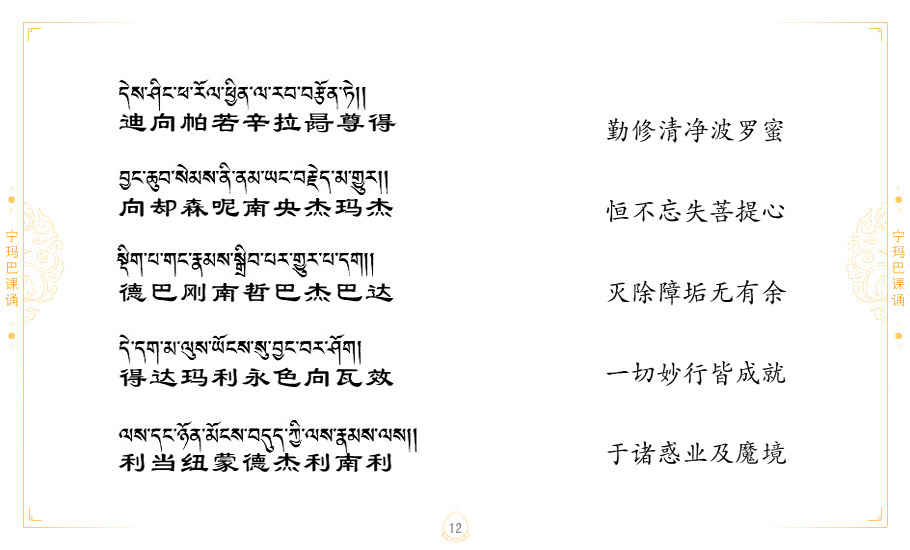 དེས་ཤིང་ཕ་རོལ་ཕྱིན་ལ་རབ་བརྩོན་ཏེ།།
迪向帕若辛拉尊得
勤修清净波罗蜜
བྱང་ཆུབ་སེམས་ནི་ནམ་ཡང་བརྗེད་མ་གྱུར།།
向却森呢南央杰玛杰
恒不忘失菩提心
སྡིག་པ་གང་རྣམས་སྒྲིབ་པར་གྱུར་པ་དག།
德巴刚南哲巴杰巴达
灭除障垢无有余
དེ་དག་མ་ལུས་ཡོངས་སུ་བྱང་བར་ཤོག།
得达玛利永色向瓦效
一切妙行皆成就
ལས་དང་ཉོན་མོངས་བདུད་ཀྱི་ལས་རྣམས་ལས།།
利当纽蒙德杰利南利
于诸惑业及魔境
宁玛巴课诵
宁玛巴课诵
12